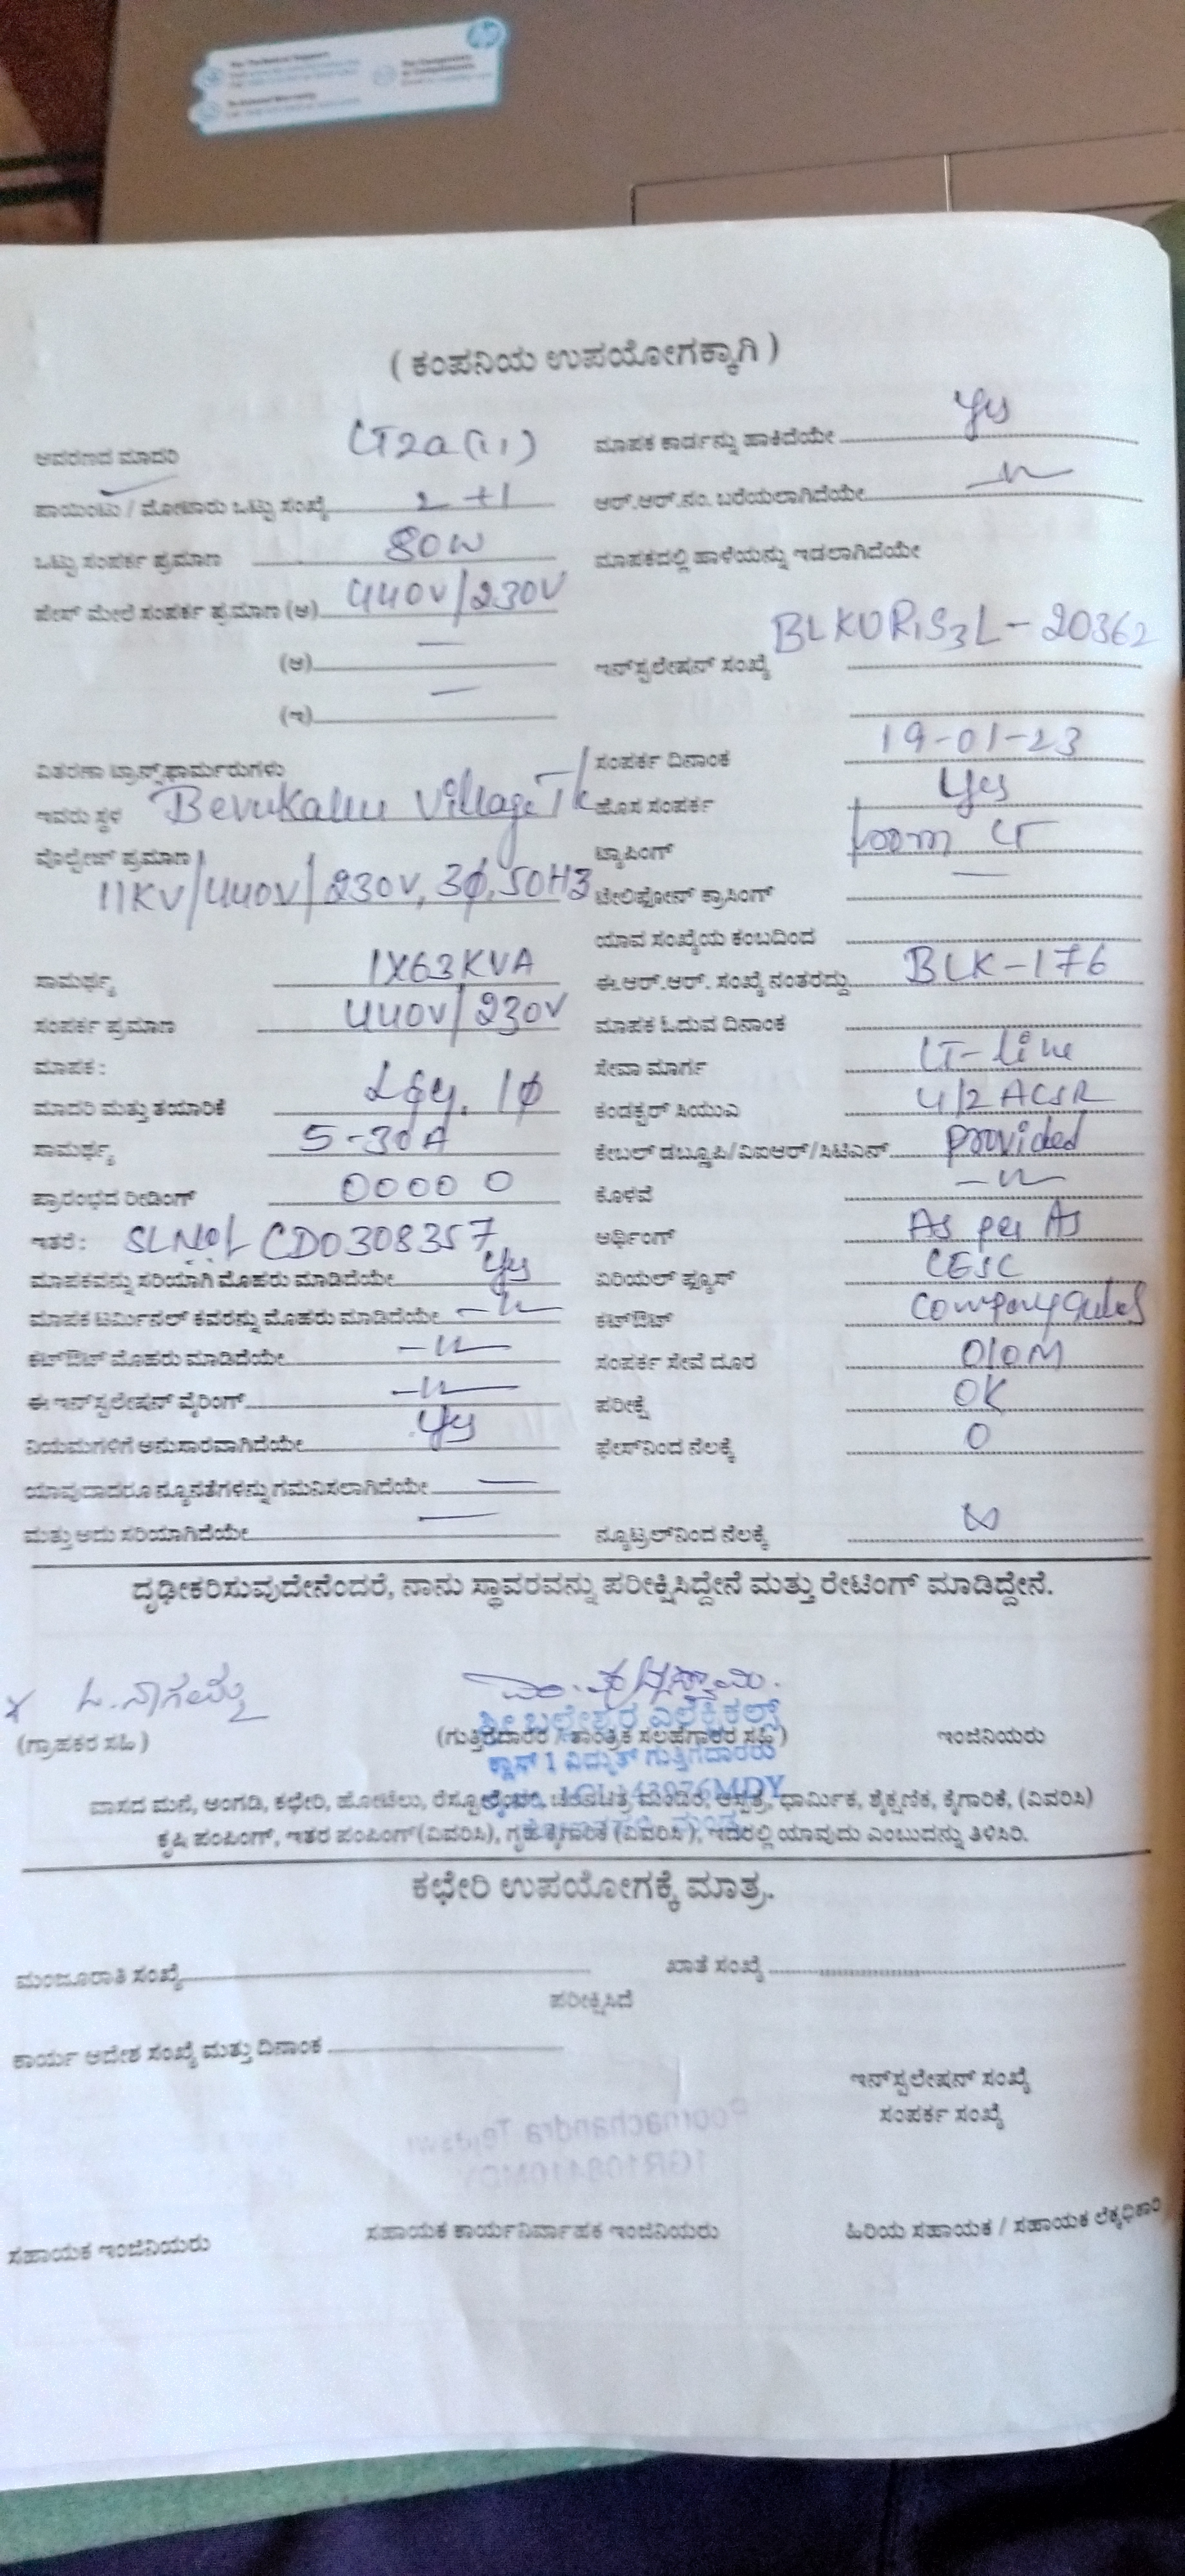 ( ಕಂಪನಿಯ ಉಪಯೋಗಕ್ಕಾಗಿ )
ಆವರಣದ ಮಾದರಿ LT2a(ii) ಮಾಪಕ ಕಾರ್ಡನ್ನು ಹಾಕಿದೆಯೇ Yes
ಪಾಯಿಂಟು / ಮೋಟಾರು ಒಟ್ಟು ಸಂಖ್ಯೆ 2 +1 ಆರ್.ಆರ್.ನಂ. ಬರೆಯಲಾಗಿದೆಯೇ -11-
ಒಟ್ಟು ಸಂಪರ್ಕ ಪ್ರಮಾಣ 80W ಮಾಪಕದಲ್ಲಿ ಹಾಳೆಯನ್ನು ಇಡಲಾಗಿದೆಯೇ
ಫೇಸ್ ಮೇಲೆ ಸಂಪರ್ಕ ಪ್ರಮಾಣ (ಅ) 440V/230V
(ಆ) — ಇನ್‌ಸ್ಟಲೇಷನ್ ಸಂಖ್ಯೆ BLKUR1S3L-20362
(ಇ) —
ವಿತರಣಾ ಟ್ರಾನ್ಸ್‌ಫಾರ್ಮರುಗಳು ಸಂಪರ್ಕ ದಿನಾಂಕ 19-01-23
ಇವರು ಸ್ಥಳ Bevukallu Village Tk ಹೊಸ ಸಂಪರ್ಕ Yes
ವೊಲ್ಟೇಜ್ ಪ್ರಮಾಣ ಟ್ಯಾಪಿಂಗ್ from LT
11KV/440V/230V, 3ϕ, 50HZ ಟೇಲಿಫೋನ್ ಕ್ರಾಸಿಂಗ್ —
ಯಾವ ಸಂಖ್ಯೆಯ ಕಂಬದಿಂದ
ಸಾಮರ್ಥ್ಯ 1X63KVA ಈ.ಆರ್.ಆರ್. ಸಂಖ್ಯೆ ನಂತರದ್ದು BLK-176
ಸಂಪರ್ಕ ಪ್ರಮಾಣ 440V/230V ಮಾಪಕ ಓದುವ ದಿನಾಂಕ
ಮಾಪಕ : ಸೇವಾ ಮಾರ್ಗ LT-line
ಮಾದರಿ ಮತ್ತು ತಯಾರಿಕೆ L&G, 1ϕ ಕಂಡಕ್ಟರ್ ಸಿಯುಎ 4/2 ACSR
ಸಾಮರ್ಥ್ಯ 5-30A ಕೇಬಲ್ ಡಬ್ಲ್ಯೂಪಿ/ವಿಐಆರ್/ಸಿಟಿಎಸ್ provided
ಪ್ರಾರಂಭದ ರೀಡಿಂಗ್ 0000 0 ಕೊಳವೆ -11-
ಇತರೆ : SLNo: CD0308357 ಅರ್ಥಿಂಗ್ As per As
ಮಾಪಕವನ್ನು ಸರಿಯಾಗಿ ಮೊಹರು ಮಾಡಿದೆಯೇ Yes ಏರಿಯಲ್ ಫ್ಯೂಸ್ CESC
ಮಾಪಕ ಟರ್ಮಿನಲ್ ಕವರನ್ನು ಮೊಹರು ಮಾಡಿದೆಯೇ -11- ಕಟ್‌ಔಟ್ Company
ಕಟ್‌ಔಟ್ ಮೊಹರು ಮಾಡಿದೆಯೇ -11- ಸಂಪರ್ಕ ಸೇವೆ ದೂರ 010M
ಈ ಇನ್‌ಸ್ಟಲೇಷನ್ ವೈರಿಂಗ್ -11- ಪರೀಕ್ಷೆ OK
ನಿಯಮಗಳಿಗೆ ಅನುಸಾರವಾಗಿದೆಯೇ Yes ಫೇಸ್‌ನಿಂದ ನೆಲಕ್ಕೆ 0
ಯಾವುದಾದರೂ ನ್ಯೂನತೆಗಳನ್ನು ಗಮನಿಸಲಾಗಿದೆಯೇ —
ಮತ್ತು ಅದು ಸರಿಯಾಗಿದೆಯೇ — ನ್ಯೂಟ್ರಲ್‌ನಿಂದ ನೆಲಕ್ಕೆ ∞
ದೃಢೀಕರಿಸುವುದೇನೆಂದರೆ, ನಾನು ಸ್ಥಾವರವನ್ನು ಪರೀಕ್ಷಿಸಿದ್ದೇನೆ ಮತ್ತು ರೇಟಿಂಗ್ ಮಾಡಿದ್ದೇನೆ.
x ಓ. ನಾಗಮ್ಮ
ಶ್ರೀ ಬಲ್ಲೇಶ್ವರ ಎಲೆಕ್ಟ್ರಿಕಲ್ಸ್
(ಗ್ರಾಹಕರ ಸಹಿ) (ಗುತ್ತಿಗೆದಾರರ / ತಾಂತ್ರಿಕ ಸಲಹೆಗಾರರ ಸಹಿ) ಇಂಜಿನಿಯರು
ಕ್ಲಾಸ್ 1 ವಿದ್ಯುತ್ ಗುತ್ತಿಗೆದಾರರು
ವಾಸದ ಮನೆ, ಅಂಗಡಿ, ಕಛೇರಿ, ಹೋಟೆಲು, ಆಸ್ಪತ್ರೆ, ಧಾರ್ಮಿಕ, ಶೈಕ್ಷಣಿಕ, ಕೈಗಾರಿಕೆ, (ವಿವರಿಸಿ)
ಕೃಷಿ ಪಂಪಿಂಗ್, ಇತರ ಪಂಪಿಂಗ್(ವಿವರಿಸಿ), ಗೃಹ ಕೈಗಾರಿಕೆ (ವಿವರಿಸಿ), ಇದರಲ್ಲಿ ಯಾವುದು ಎಂಬುದನ್ನು ತಿಳಿಸಿರಿ.
ಕಛೇರಿ ಉಪಯೋಗಕ್ಕೆ ಮಾತ್ರ.
ಮಂಜೂರಾತಿ ಸಂಖ್ಯೆ ಖಾತೆ ಸಂಖ್ಯೆ
ಪರೀಕ್ಷಿಸಿದೆ
ಕಾರ್ಯ ಆದೇಶ ಸಂಖ್ಯೆ ಮತ್ತು ದಿನಾಂಕ
ಇನ್‌ಸ್ಟಲೇಷನ್ ಸಂಖ್ಯೆ
ಸಂಪರ್ಕ ಸಂಖ್ಯೆ
ಸಹಾಯಕ ಇಂಜಿನಿಯರು ಸಹಾಯಕ ಕಾರ್ಯನಿರ್ವಾಹಕ ಇಂಜಿನಿಯರು ಹಿರಿಯ ಸಹಾಯಕ / ಸಹಾಯಕ ಲೆಕ್ಕಾಧಿಕಾರಿ